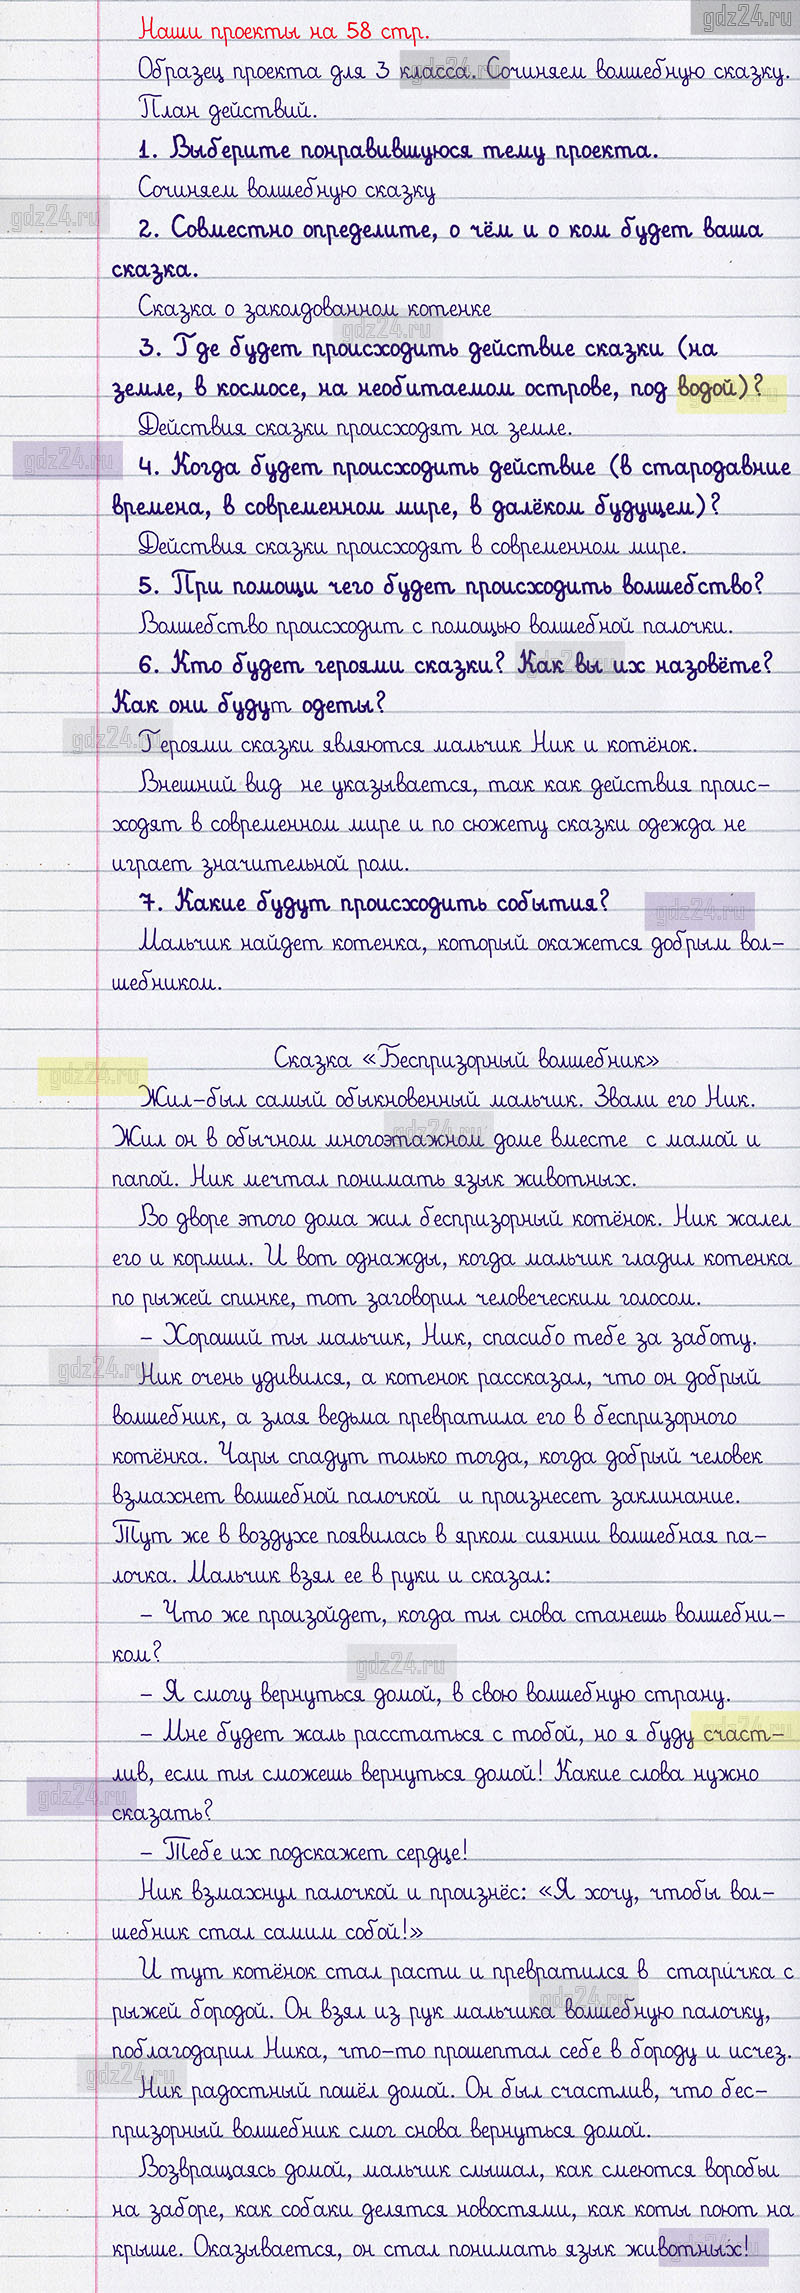 gdz24.ru
Наши проекты на 58 стр.
Образец проекта для 3 класса. Сочиняем волшебную сказку.
План действий.
1. Выберите понравившуюся тему проекта.
Сочиняем волшебную сказку
gdz24.ru
2. Совместно определите, о чём и о ком будет ваша
сказка.
Сказка о заколдованном котенке
gdz24.ru
3. Где будет происходить действие сказки (на
земле, в космосе, на необитаемом острове, под водой)?
Действия сказки происходят на земле.
gdz24.ru
4. Когда будет происходить действие (в стародавние
времена, в современном мире, в далёком будущем)?
Действия сказки происходят в современном мире.
5. При помощи чего будет происходить волшебство?
Волшебство происходит с помощью волшебной палочки.
6. Кто будет героями сказки? Как вы их назовёте?
Как они будут одеты?
gdz24.ru
Героями сказки являются мальчик Ник и котёнок.
Внешний вид не указывается, так как действия проис-
ходят в современном мире и по сюжету сказки одежда не
играет значительной роли.
7. Какие будут происходить события?
gdz24.ru
Мальчик найдет котенка, который окажется добрым вол-
шебником.
Сказка «Беспризорный волшебник»
gdz24.ru
Жил-был самый обыкновенный мальчик. Звали его Ник.
gdz24.ru
Жил он в обычном многоэтажном доме вместе с мамой и
папой. Ник мечтал понимать язык животных.
Во дворе этого дома жил беспризорный котёнок. Ник жалел
его и кормил. И вот однажды, когда мальчик гладил котенка
по рыжей спинке, тот заговорил человеческим голосом.
– Хороший ты мальчик, Ник, спасибо тебе за заботу.
gdz24.ru
Ник очень удивился, а котенок рассказал, что он добрый
волшебник, а злая ведьма превратила его в беспризорного
котёнка. Чары спадут только тогда, когда добрый человек
взмахнет волшебной палочкой и произнесет заклинание.
Тут же в воздухе появилась в ярком сиянии волшебная па-
лочка. Мальчик взял ее в руки и сказал:
– Что же произойдет, когда ты снова станешь волшебни-
ком?
gdz24.ru
– Я смогу вернуться домой, в свою волшебную страну.
– Мне будет жаль расстаться с тобой, но я буду счаст-
лив, если ты сможешь вернуться домой! Какие слова нужно
gdz24.ru
сказать?
– Тебе их подскажет сердце!
Ник взмахнул палочкой и произнёс: «Я хочу, чтобы вол-
шебник стал самим собой!»
И тут котёнок стал расти и превратился в старичка с
gdz24.ru
рыжей бородой. Он взял из рук мальчика волшебную палочку,
поблагодарил Ника, что-то прошептал себе в бороду и исчез.
gdz24.ru
Ник радостный пошёл домой. Он был счастлив, что бес-
призорный волшебник смог снова вернуться домой.
Возвращаясь домой, мальчик слышал, как смеются воробьи
на заборе, как собаки делятся новостями, как коты поют на
крыше. Оказывается, он стал понимать язык животных!